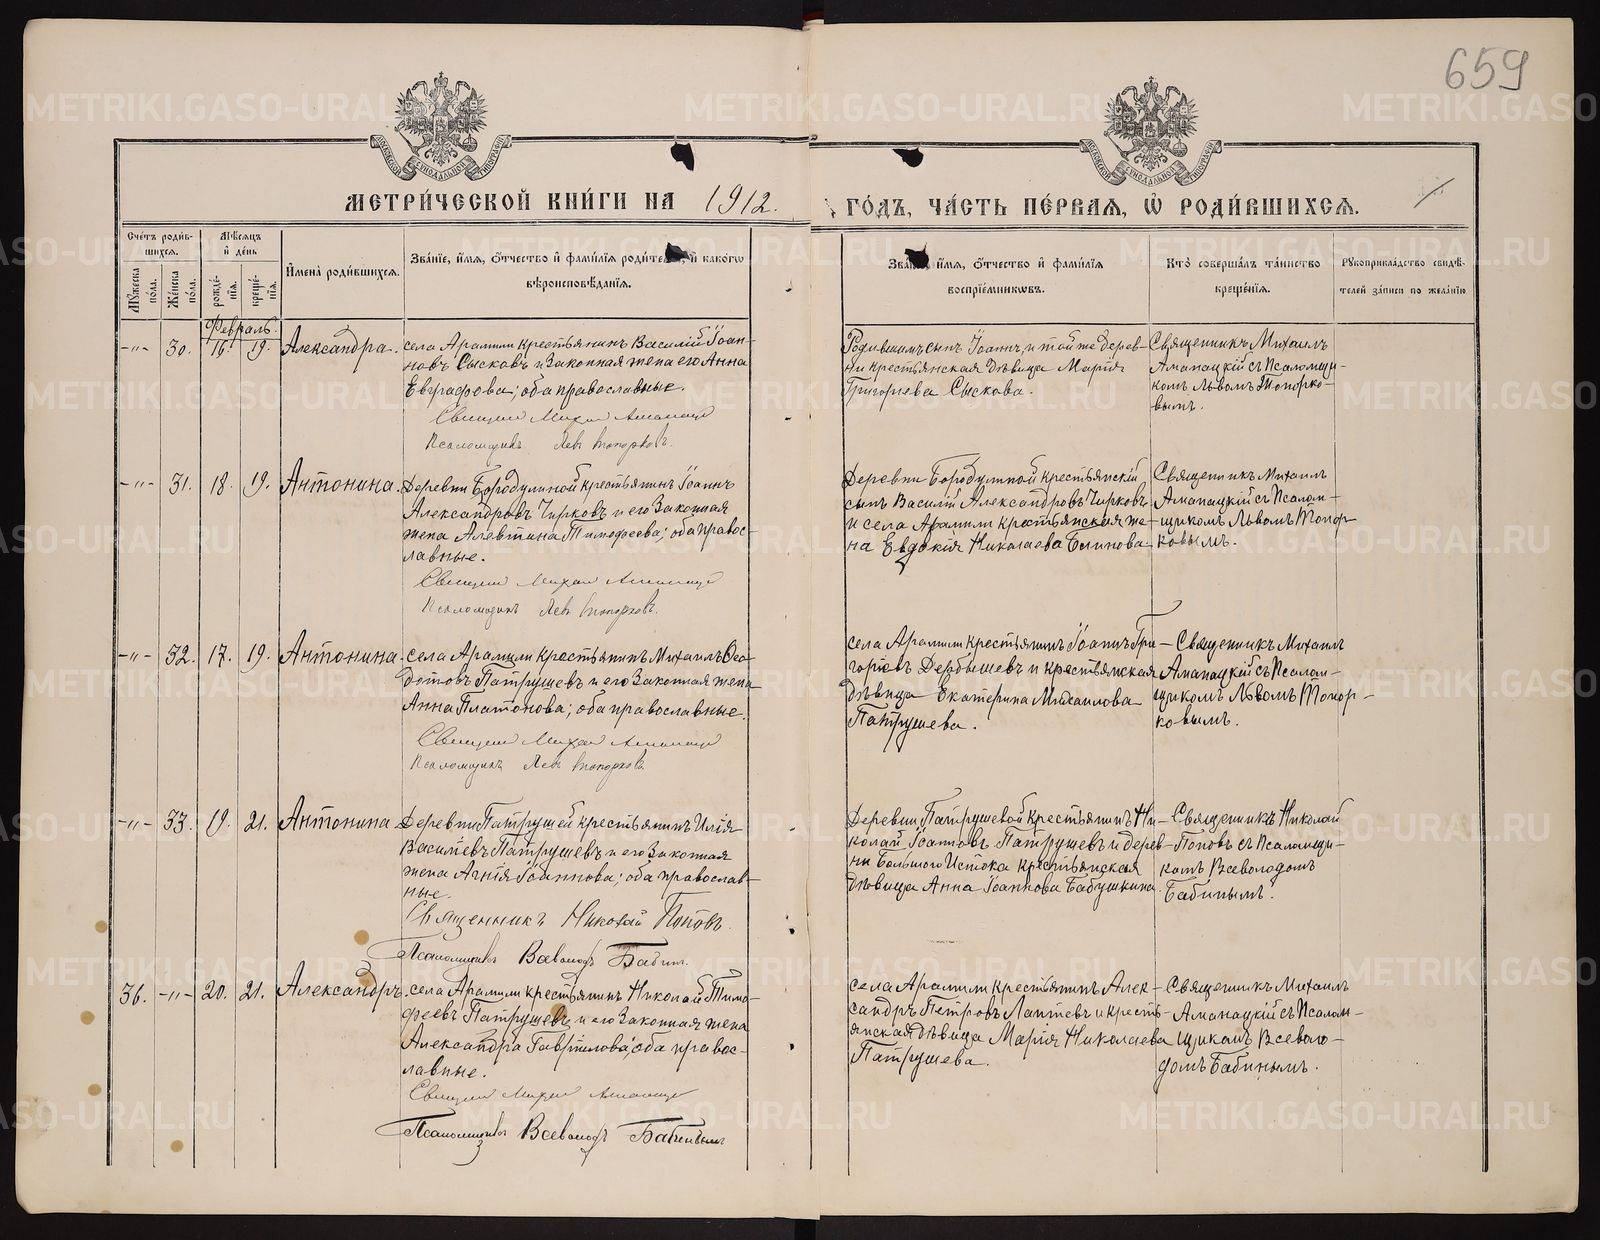 659
МЕТРИ́ЧЕСКОЙ КНИ́ГИ НА 1912. ГО́ДЪ, ЧА́СТЬ ПЕ́РВАЯ, Ѡ РОДИ́ВШИХСЯ.
Сче́тъ роди́в-
шихся.
Мѣ́сяцъ
и҆ де́нь
Мꙋ́жеска
пола.
Же́нска
пола.
рожде́-
нїя.
креще́-
нїя.
И҆мена̀ роди́вшихся.
Зва́нїе, и҆́мя, ѻ҆́тчество и҆ фами́лїя роди́телей, и҆ како́гѡ
вѣроисповѣ́данїя.
Зва́нїе, и҆́мя, ѻ҆́тчество и҆ фами́лїя
воспрїе́мникѡвъ.
Кто̀ соверша́лъ та́инство
креще́нїя.
Рꙋкоприкла́дство свидѣ́-
телей за́писи по жела́нїю
Февраль.
-"- 30. 16. 19. Александра.
села Арамили крестьянинъ Василій Іоан-
новъ Сысковъ и законная жена его Анна
Евграфова; оба православные.
Священникъ Михаил Аманацкій
Псаломщикъ Левъ Топорковъ.
Родившаго сынъ Іоаннъ и той же дерев-
ни крестьянская дѣвица Марія
Григорьева Сыскова.
Священникъ Михаилъ
Аманацкій съ Псаломщи-
комъ Львомъ Топорко-
вымъ.
-"- 31. 18. 19. Антонина.
Деревни Бородулиной крестьянинъ Іоаннъ
Александровъ Чирковъ и его законная
жена Алевтина Тимофеева; оба правос-
лавные.
Священник Михаил Аманацкій
Псаломщикъ Левъ Топорковъ.
Деревни Бородулиной крестьянскій
сынъ Василій Александровъ Чирковъ
и села Арамили крестьянская же-
на Евдокія Николаева Блинова.
Священникъ Михаилъ
Аманацкій съ Псалом-
щикомъ Львомъ Топор-
ковымъ.
-"- 32. 17. 19. Антонина.
села Арамили крестьянинъ Михаилъ Ѳео-
дотовъ Патрушевъ и его законная жена
Анна Платонова; оба православные.
Священник Михаил Аманацкій
Псаломщикъ Левъ Топорковъ
села Арамили крестьянинъ Іоаннъ Гри-
горіевъ Дербышевъ и крестьянская
дѣвица Екатерина Михаилова
Патрушева.
Священникъ Михаил
Аманацкій съ Псалом-
щикомъ Львомъ Топор-
ковымъ.
-"- 33. 19. 21. Антонина
Деревни Патрушей крестьянинъ Илія
Василіевъ Патрушевъ и его законная
жена Агнія Іоаннова; оба православ-
ные.
Священникъ Николай Поповъ.
Псаломщикъ Всеволодъ Бабинъ.
Деревни Патрушевой крестьянинъ Ни-
колай Іоанновъ Патрушевъ и дерев-
ни Большого Истока крестьянская
дѣвица Анна Іоаннова Бабушкина.
Священникъ Николай
Поповъ съ Псаломщи-
комъ Всеволодомъ
Бабинымъ.
36. -"- 20. 21. Александръ.
села Арамили крестьянинъ Николай Тимо-
феевъ Патрушевъ и его законная жена
Александра Гавріилова; оба правос-
лавные.
Священник Михаил Аманацкій
Псаломщикъ Всеволодъ Бабинымъ
села Арамили крестьянинъ Алек-
сандръ Петровъ Лаптевъ и кресть-
янская дѣвица Марія Николаева
Патрушева.
Священникъ Михаилъ
Аманацкій съ Псалом-
щикомъ Всеволо-
домъ Бабинымъ.
METRIKI.GASO-URAL.RU